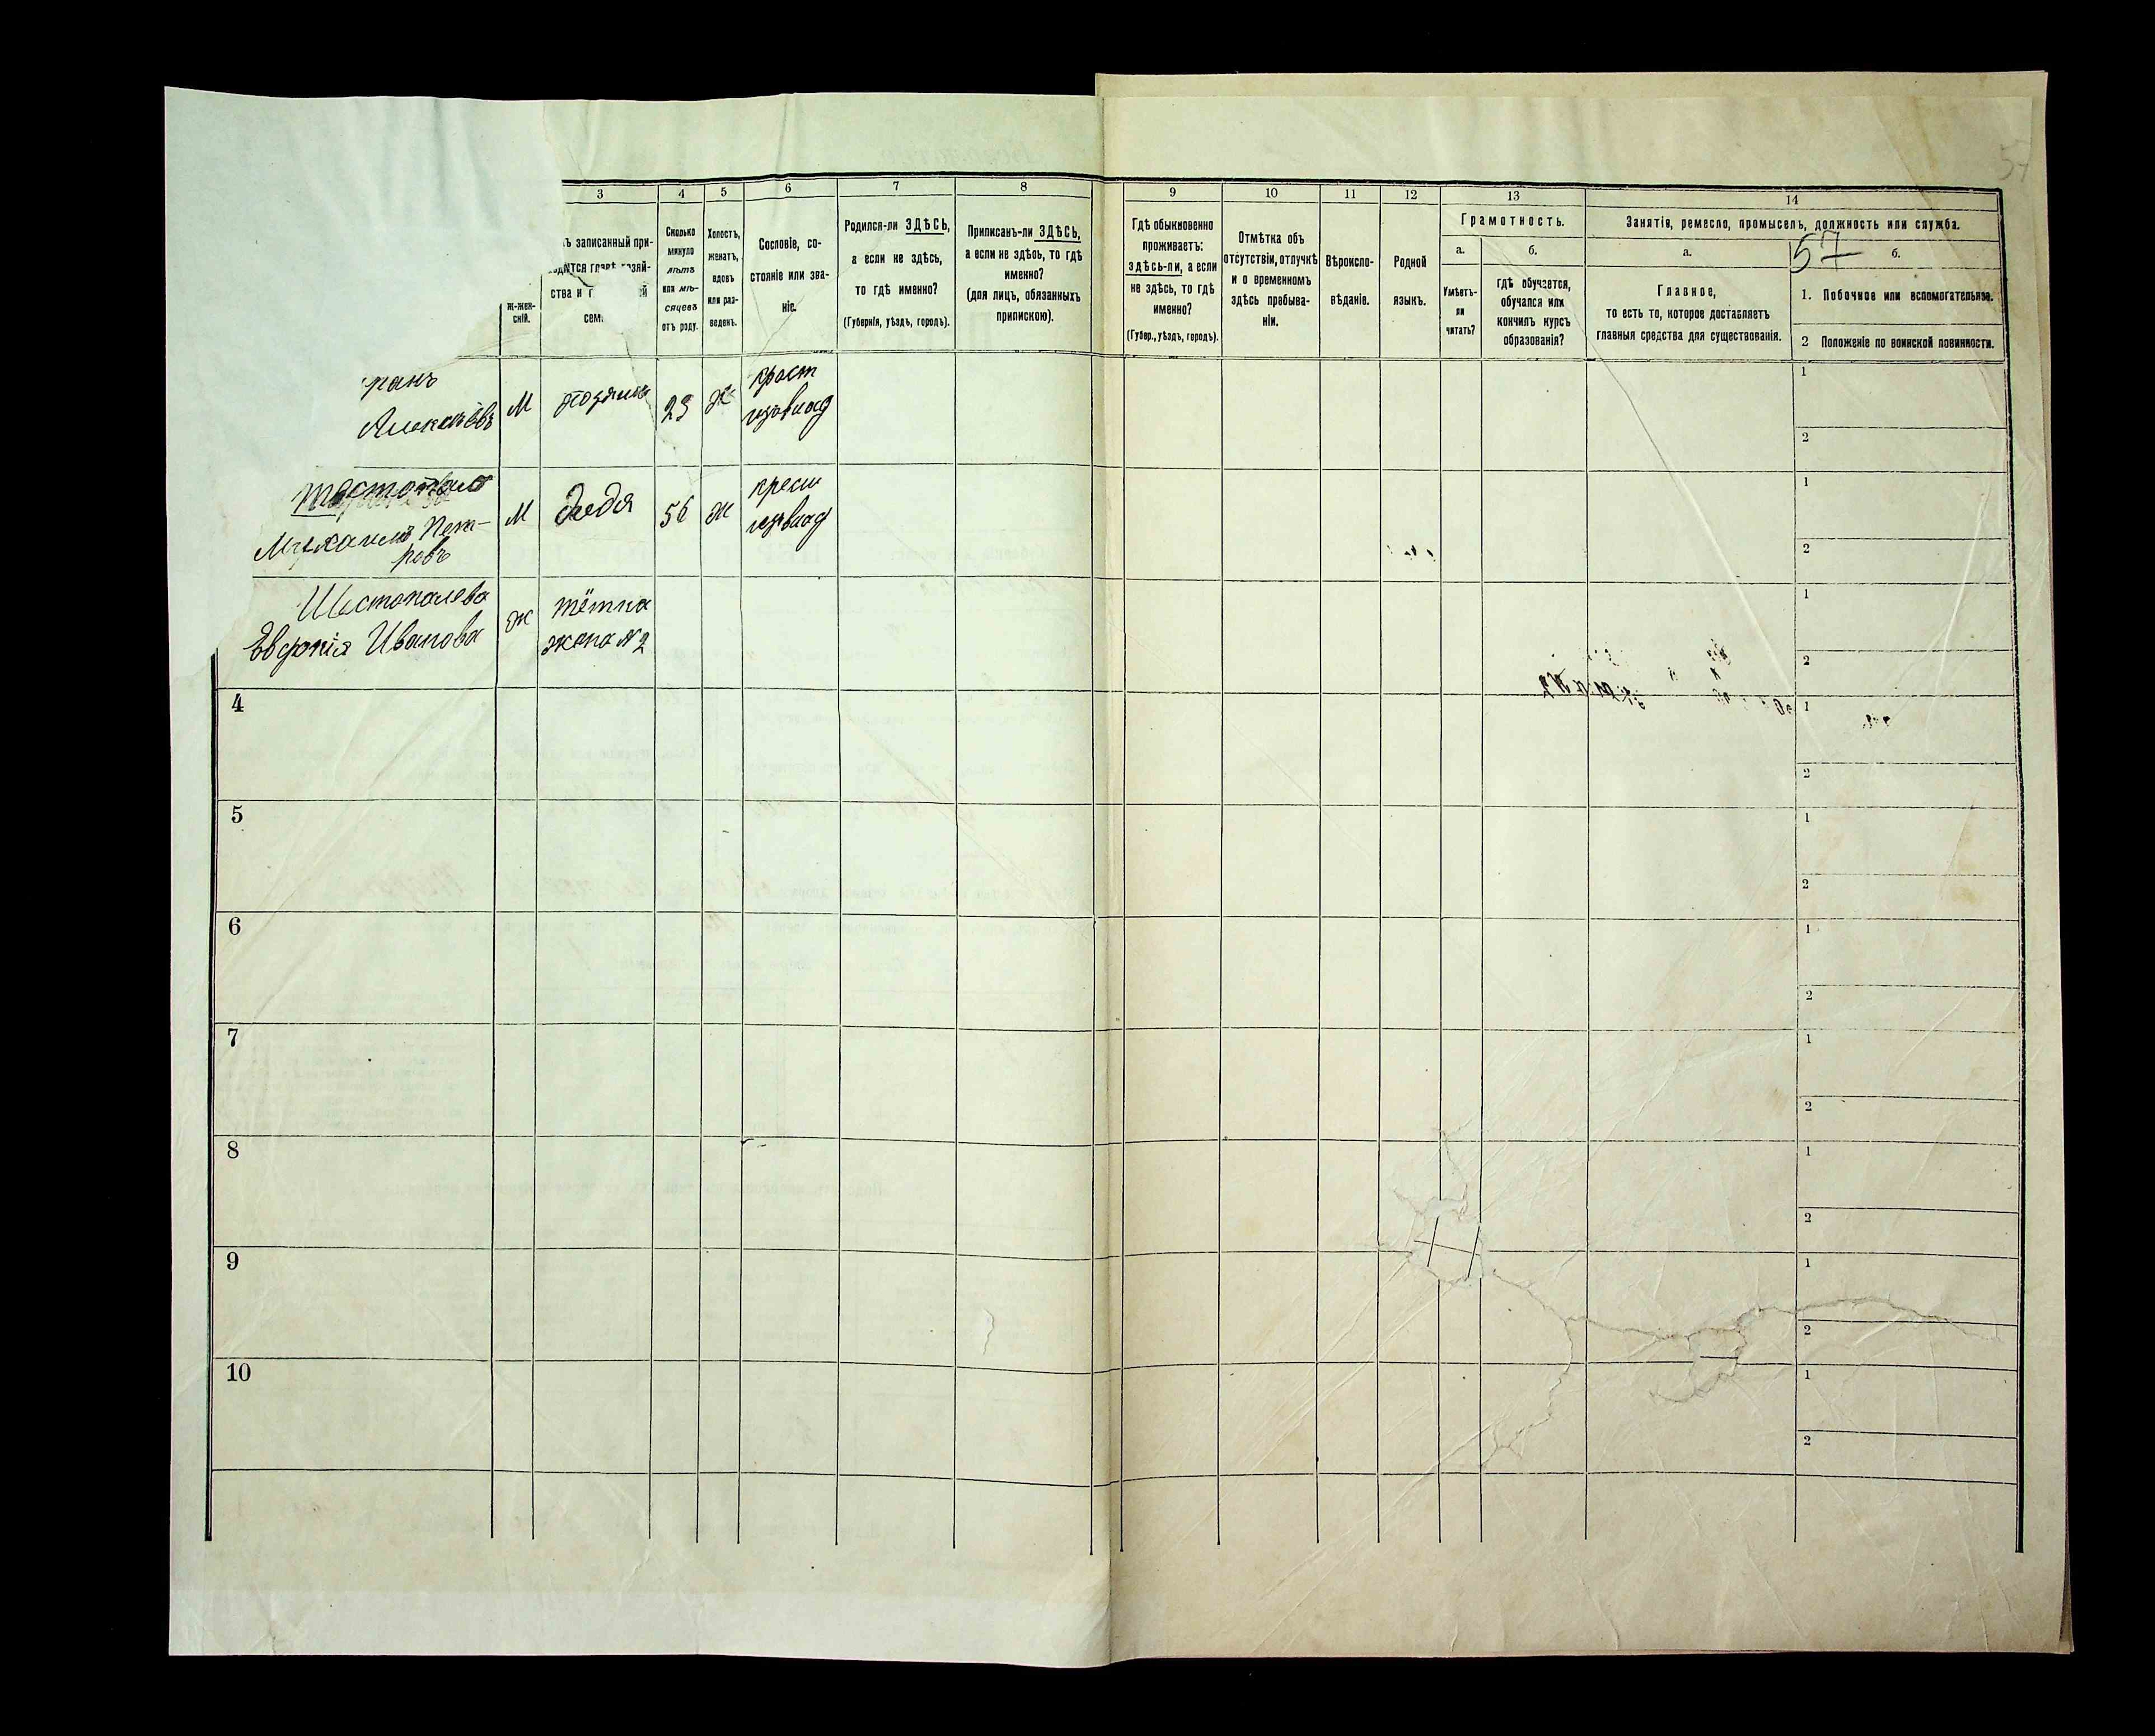 57
3
4
5
6
7
8
9
10
11
12
13
14
ъ записанный при-
ходится главѣ хозяй-
ства и
сем
ж-жен-
скій.
Сколько
минуло
лѣтъ
или мѣ-
сяцевъ
отъ роду.
Холостъ,
женатъ,
вдовъ
или раз-
веденъ.
Сословіе, со-
стояніе или зва-
ніе.
Родился-ли ЗДѢСЬ,
а если не здѣсь,
то гдѣ именно?
(Губернія, уѣздъ, городъ).
Приписанъ-ли ЗДѢСЬ,
а если не здѣсь, то гдѣ
именно?
(для лицъ, обязанныхъ
припискою).
Гдѣ обыкновенно
проживаетъ:
здѣсь-ли, а если
не здѣсь, то гдѣ
именно?
(Губер., уѣздъ, городъ).
Отмѣтка объ
отсутствіи, отлучкѣ
и о временномъ
здѣсь пребыва-
ніи.
Вѣроиспо-
вѣданіе.
Родной
языкъ.
Грамотность.
а.
б.
Умѣетъ-
ли
читать?
гдѣ обучается,
обучался или
кончилъ курсъ
образованія?
Занятія, ремесло, промыселъ, должность или служба.
а.
57
б.
Главное,
то есть то, которое доставляетъ
главныя средства для существованія.
1. Побочное или вспомогательное.
2 Положеніе по воинской повинности.
М 23 ж
1
2
Михаилъ Пет-
ровъ
М дядя 56 ж
1
2
Шестопалева
Евфрнія Иванова
ж
тётка
жена № 2
1
2
4
1
2
5
1
2
6
1
2
7
1
2
8
1
2
9
1
2
10
1
2